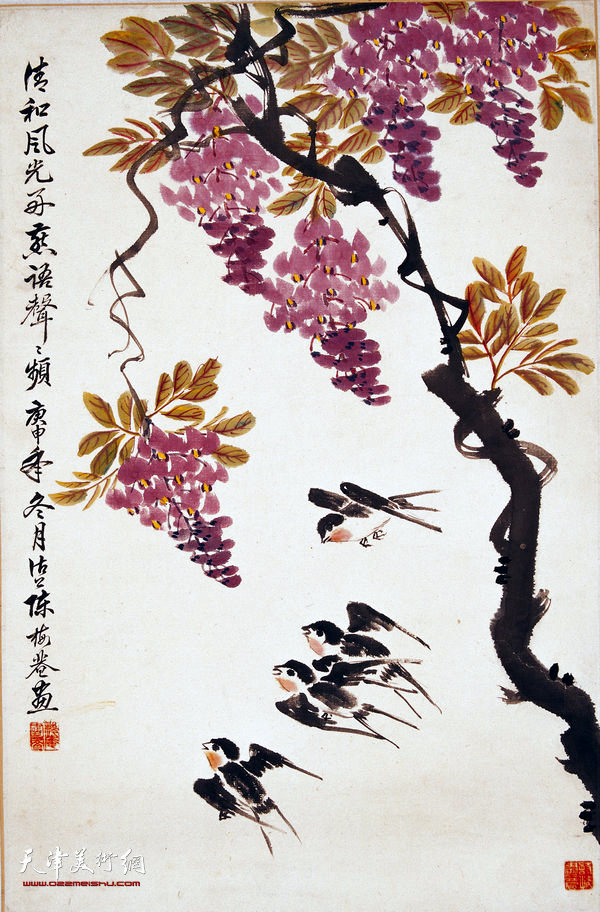 清和风光好燕语聲〻頻庚申年冬月沽上陈梅菴画
天津美術網
www.022meishu.com